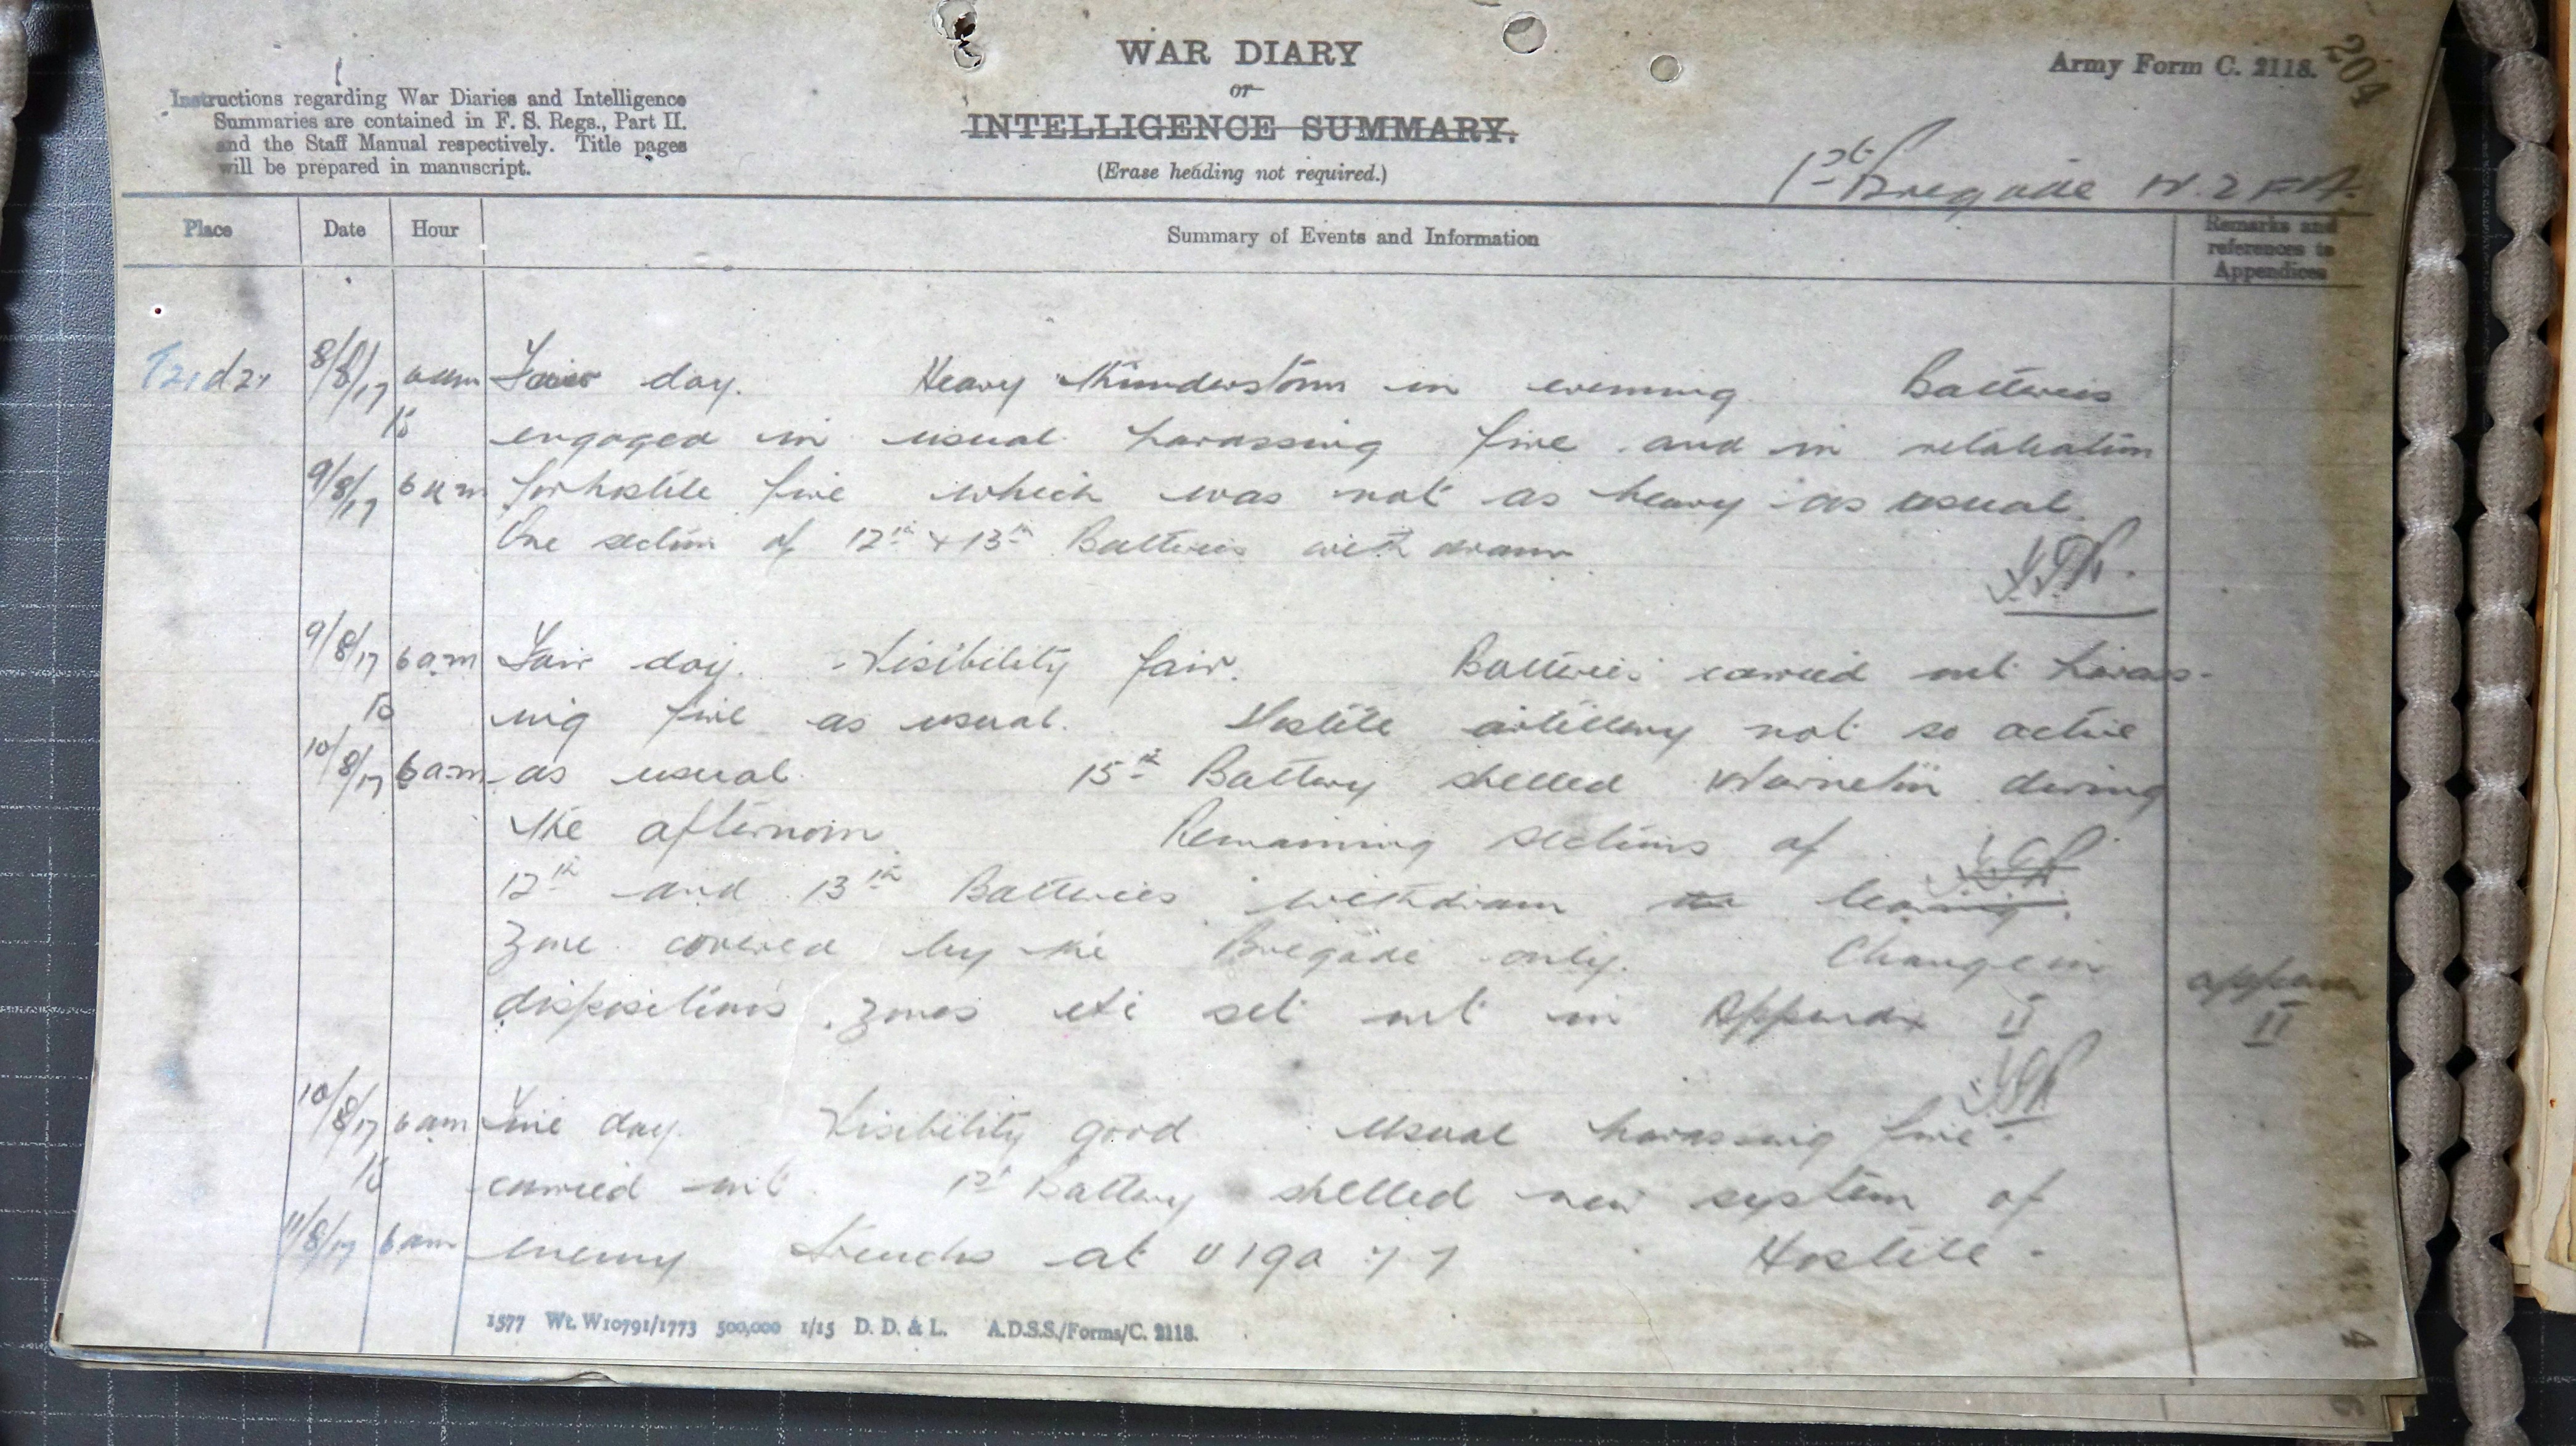 WAR DIARY
or
INTELLIGENCE SUMMARY.
(Erase heading not required.)
Army Form C. 2118.
204
Instructions regarding War Diaries and Intelligence
Summaries are contained in F. S. Regs., Part II.
and the Staff Manual respectively. Title pages
will be prepared in manuscript.
1st Brigade N.Z.F.A.
Place Date Hour Summary of Events and Information Remarks and
references to
Appendices
8/8/17 6am Fair day. Heavy thunderstorm in evening Batteries
to engaged in usual harassing fire and in retaliation
9/8/17 6am for hostile fire which was not as heavy as usual.
One section of 12th & 13th Batteries withdrawn
9/8/17 6am Fair day. Visibility fair. Batteries carried out harass-
to ing fire as usual. Hostile artillery not so active
10/8/17 6am as usual. 15th Battery shelled Warneton during
the afternoon. Remaining sections of
12th and 13th Batteries withdrawn the leaving
zone covered by the Brigade only. Change in
dispositions, zones etc set out in Appendix II
Appendix
II
10/8/17 6am Fine day. Visibility good Usual harassing fire
to carried out. Battery shelled new system of
11/8/17 6am enemy trenches at U 19a Hostile -
1577 Wt. W10791/1773 500,000 1/15 D. D. & L. A.D.S.S./Forms/C. 2118.